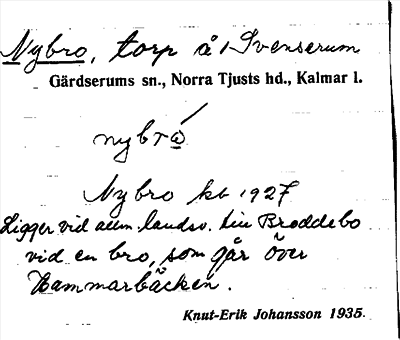 Nybro, torp å Svenserum
Gärdserums sn., Norra Tjusts hd., Kalmar l.
nybro
Nybro kb 1927
Ligger vid allm. landsv. till Broddebo
vid en bro, som går över
Hammarbäcken.
Knut-Erik Johansson 1935.